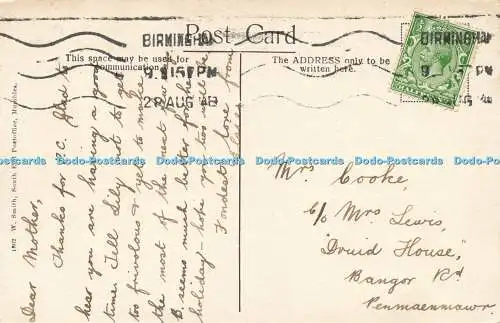 Post Card
This space may be used for
communication
The ADDRESS only to be
written here.
BIRMINGHAM
9.15 PM
28 AUG
BIRMINGHAM
9. PM
Dear Mother,
Thanks for P.C. Glad to
hear you are having a good
time. Tell Lily not to get
too frivolous & get to make
the most of the next few
B. seems much better for her
holiday – hope you too will be
Fondest love from
Mrs Cooke,
c/o Mrs Lewis,
"Druid House,"
Bangor Rd
Penmaenmawr
W. Smith, South Postoffice,
Dodo-Postcards Dodo-Postcards Dodo-Postcards Dodo-Postcards Dodo-Postcards Dodo-Postcards